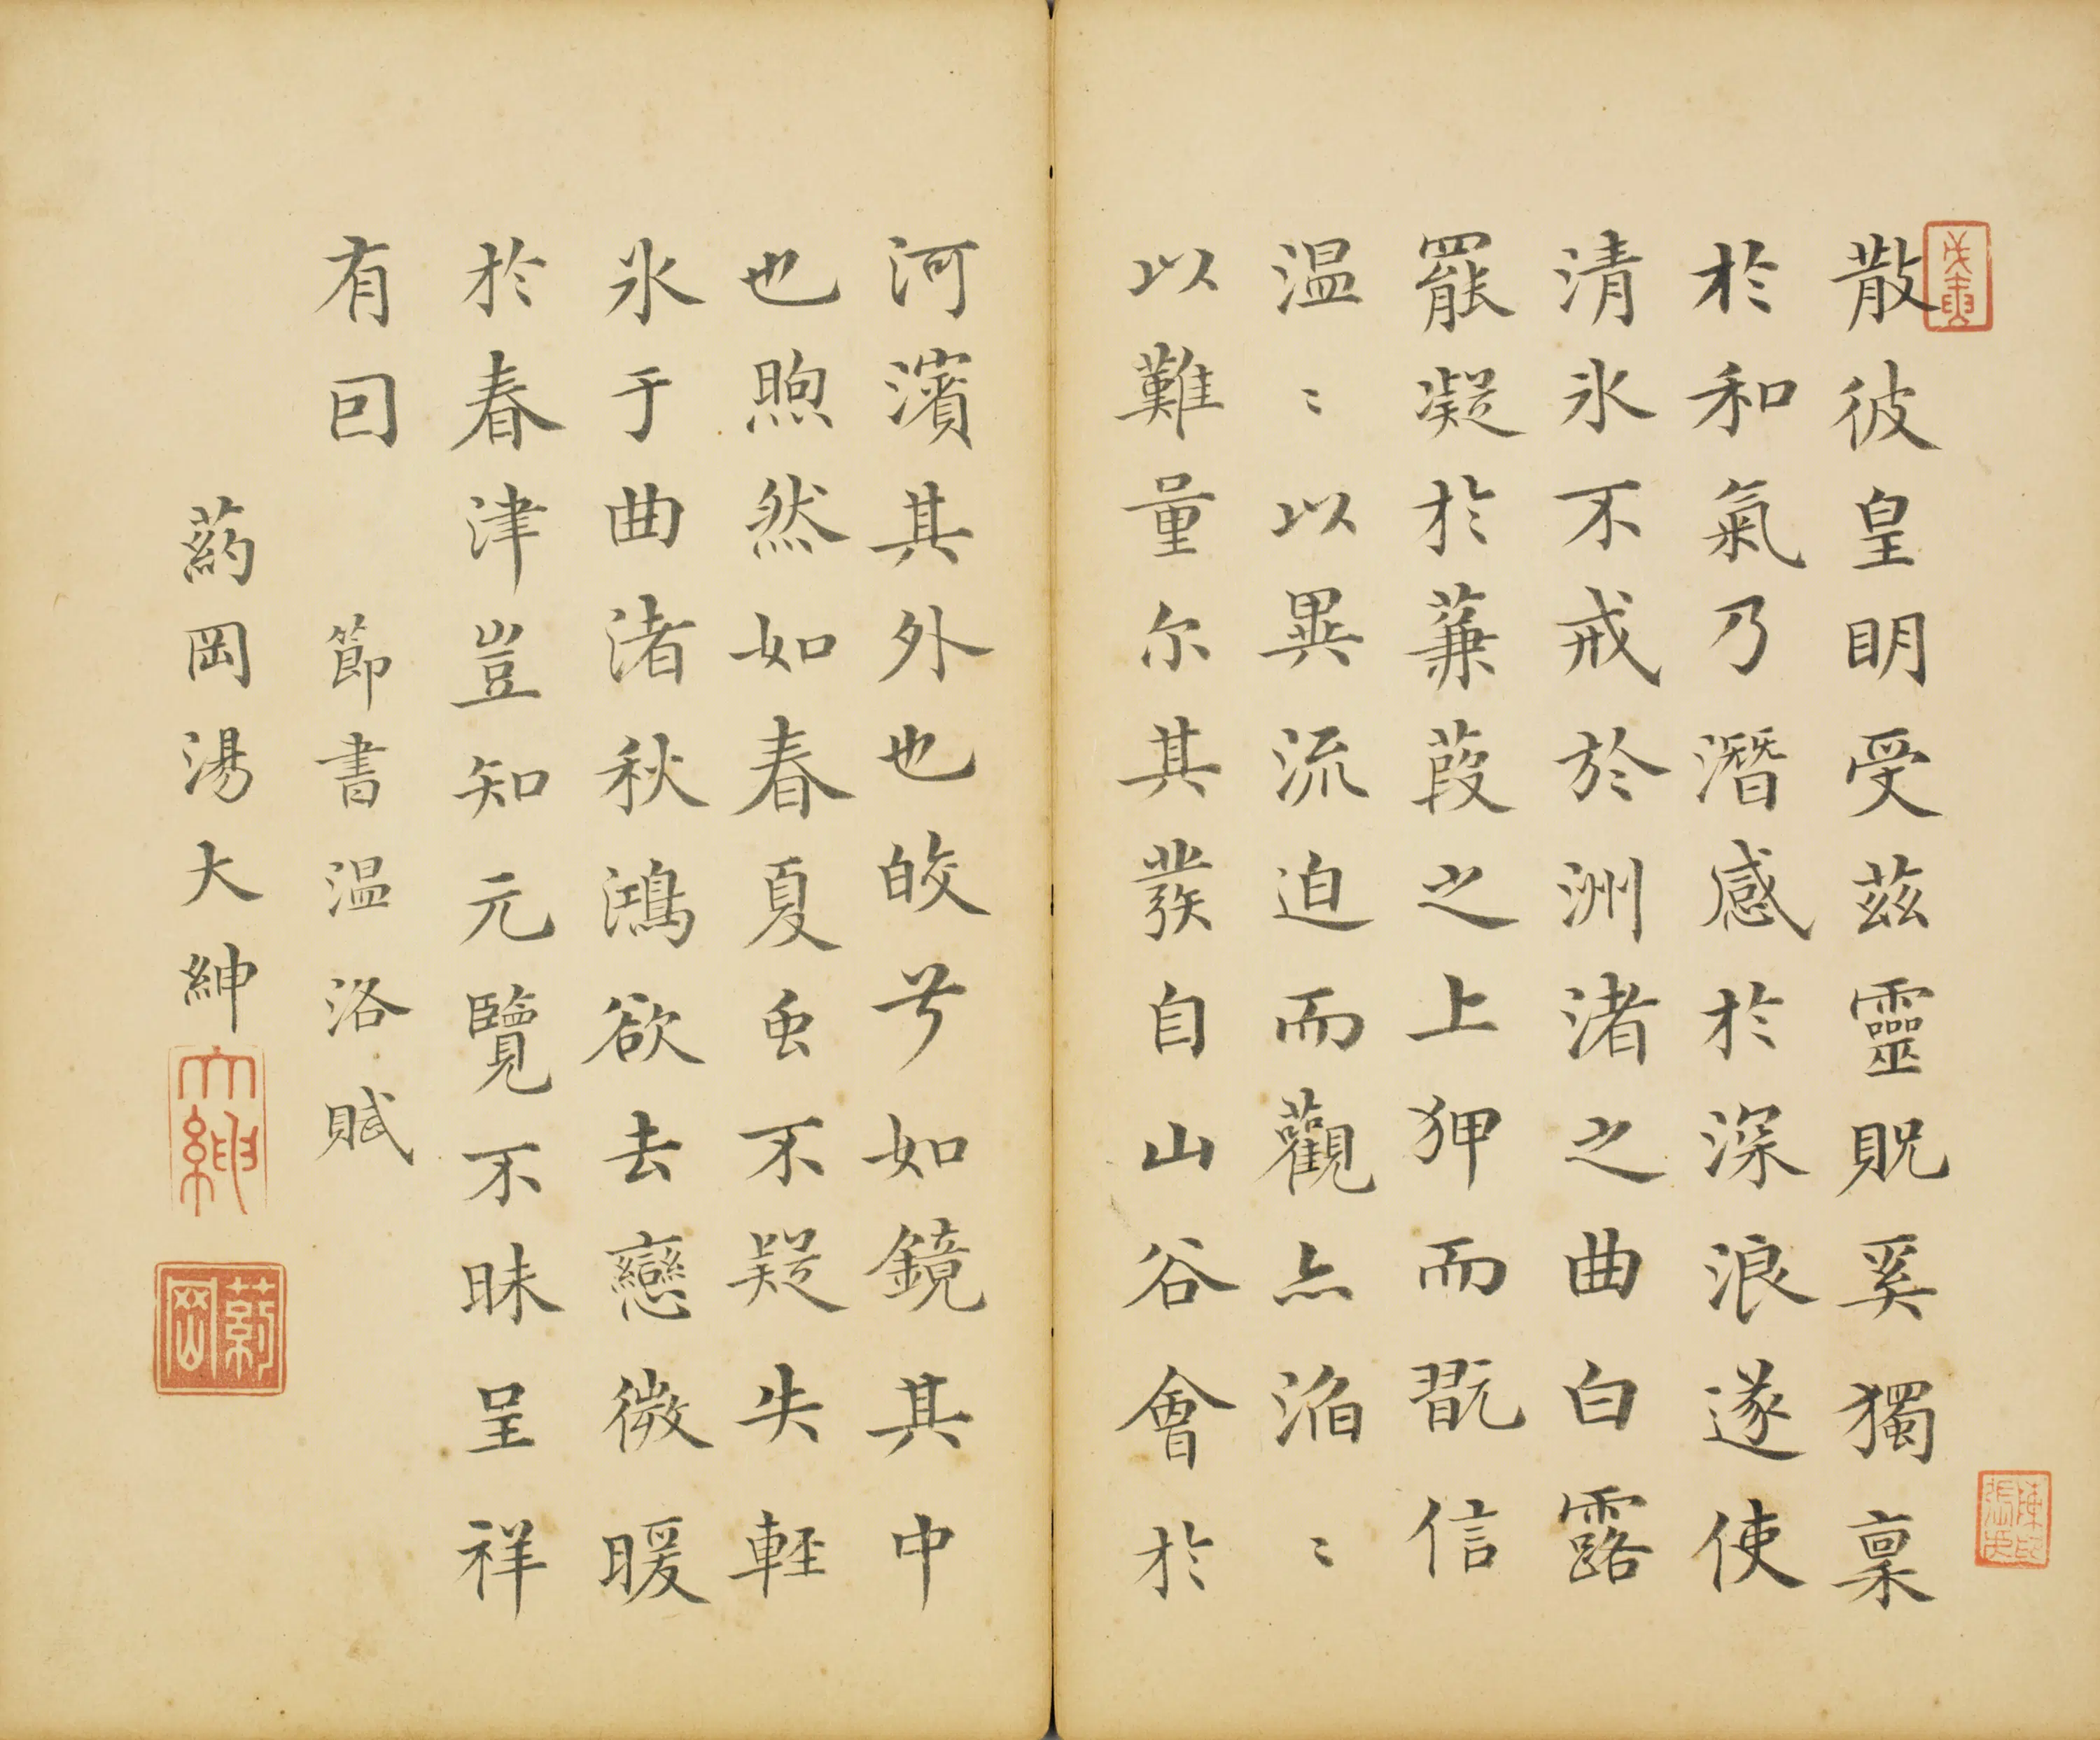 散彼皇明受茲靈貺奚獨稟
於和氣乃潛感於深浪遂使
清氷不戒於洲渚之曲白露
罷凝於蒹葭之上狎而翫信
温〻以異流迫而觀亦滔〻
以難量尔其發自山谷會於
河濱其外也皎兮如鏡其中
也煦然如春夏虫不疑失輕
氷于曲渚秋鴻欲去戀微暖
於春津豈知元覽不昧呈祥
有因
節書温洛賦
葯岡湯大紳
大紳
葯岡